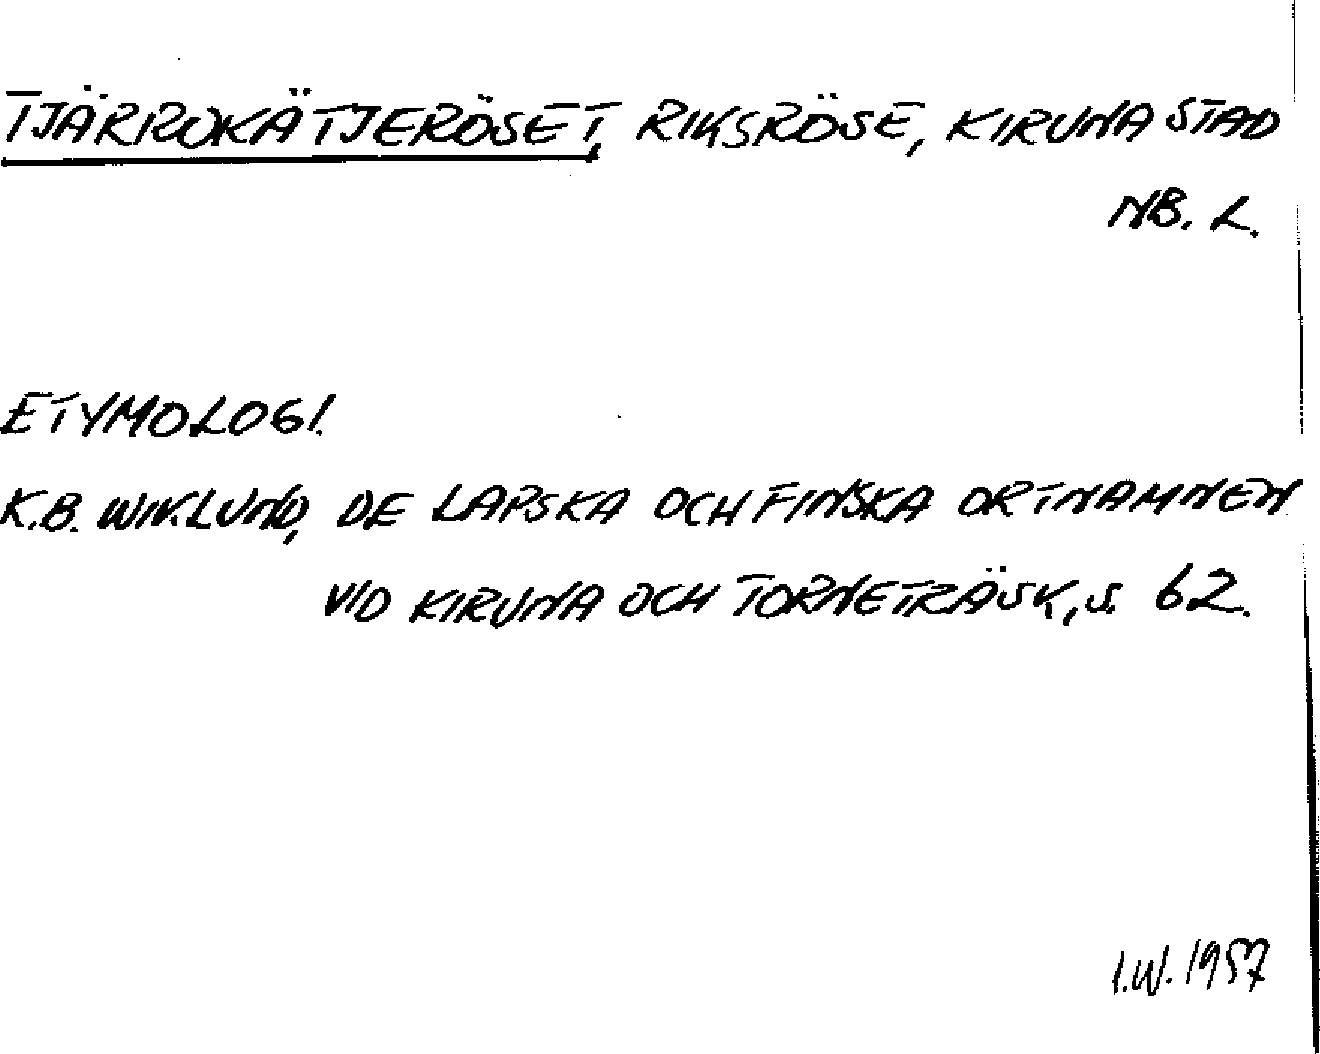 TJÄRROKÄTJERÖSET, RIKSRÖSE, KIRUNA STAD
NB. L.
ETYMOLOGI.
K.B. WIKLUND, DE LAPSKA OCH FINSKA ORTNAMNEN
VID KIRUNA OCH TORNETRÄSK, S. 62.
I.W. 1957